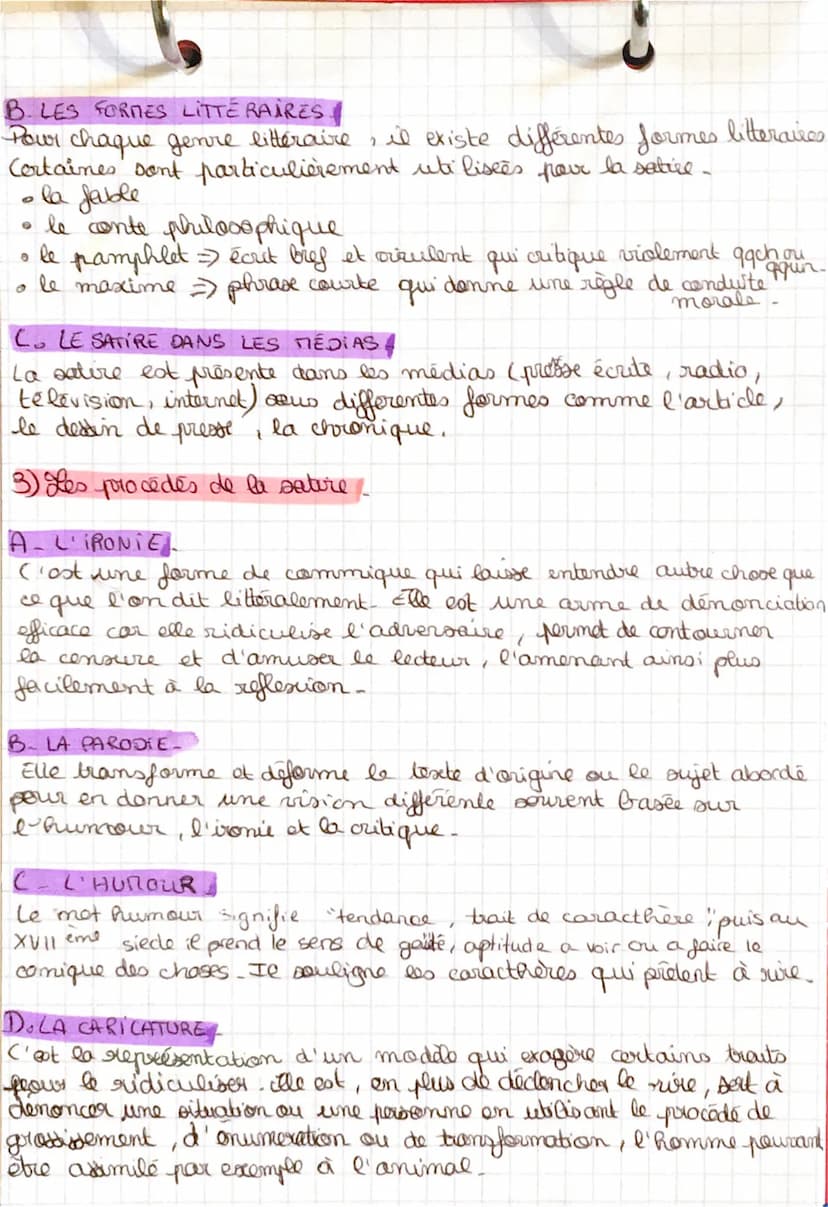 B. LES FORMES LITTÉRAIRES
Pour chaque genre littéraire, il existe différentes formes litteraires
Certaines sont particulièrement utilisées pour la satire.
• la fable
• le conte philosophique
• le pamphlet => écrit bref et virulent qui critique violement qqch ou qqun.
• le maxime => phrase courte qui donne une règle de conduite
morale.
C. LE SATIRE DANS LES MÉDIAS
La satire est présente dans les médias (presse écrite, radio,
télévision, internet) sous differentes formes comme l'article,
le dessin de presse, la chronique.
3) Les procédés de la satire.
A - L'IRONIE.
C'est une forme de commique qui laisse entendre autre chose que
ce que l'on dit littéralement. Elle est une arme de dénonciation
efficace car elle ridiculise l'adversaire, permet de contourner
la censure et d'amuser le lecteur, l'amenant ainsi plus
facilement à la reflexion.
B - LA PARODIE.
Elle transforme et déforme le texte d'origine ou le sujet abordé
pour en donner une vision différente souvent basée sur
l'humour, l'ironie et la critique.
C - L'HUMOUR
Le mot humour signifie "tendance, trait de caracthère", puis au
XVII ème siecle il prend le sens de gaîté, aptitude a voir ou a faire le
comique des choses. Il souligne les caracthères qui prêtent à rire.
D. LA CARICATURE
C'est la représentation d'un modèle qui exagère certains traits
pour le ridiculiser. Elle est, en plus de déclencher le rire, sert à
dénoncer une situation ou une personne en utilisant le procédé de
grossissement, d'énumeration ou de transformation, l'homme pouvant
être assimilé par exemple à l'animal.